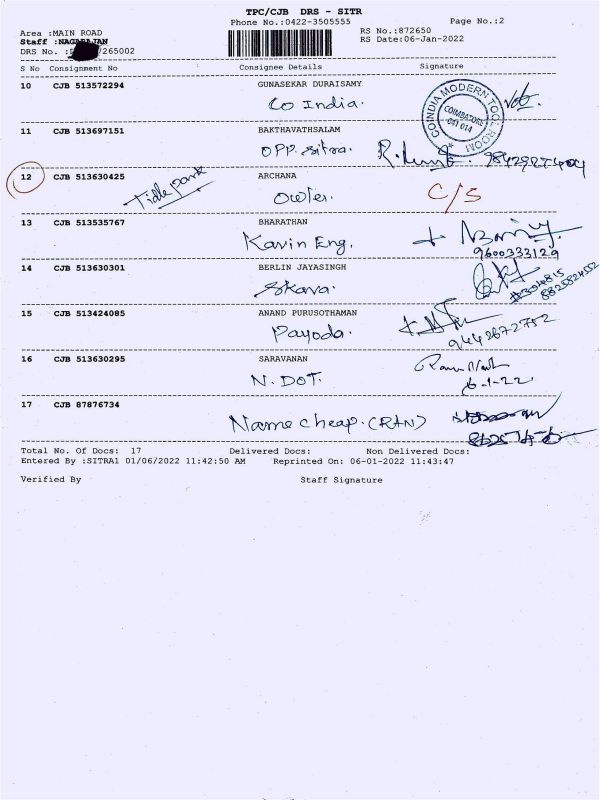 TPC/CJB DRS - SITR
Phone No.:0422-3505555
Page No.:2
Area :MAIN ROAD
RS No.:872650
Staff :NAGARAJAN
RS Date:06-Jan-2022
DRS No. : /265002
S No Consignment No Consignee Details Signature
10 CJB 513572294 GUNASEKAR DURAISAMY
Co India.
COINDIA MODERN TOOL ROOM
COIMBATORE
641 014
11 CJB 513697151 BAKTHAVATHSALAM
OPP. Sitra.
12 CJB 513630425 ARCHANA
Tidle park
Owler. C/S
13 CJB 513535767 BHARATHAN
Kavin Eng.
9600333129
14 CJB 513630301 BERLIN JAYASINGH
Skava.
15 CJB 513424085 ANAND PURUSOTHAMAN
Payoda.
9442672752
16 CJB 513630295 SARAVANAN
N. DOT.
6-1-22
17 CJB 87876734
Name cheap. (RTN)
Total No. Of Docs: 17 Delivered Docs: Non Delivered Docs:
Entered By :SITRA1 01/06/2022 11:42:50 AM Reprinted On: 06-01-2022 11:43:47
Verified By Staff Signature